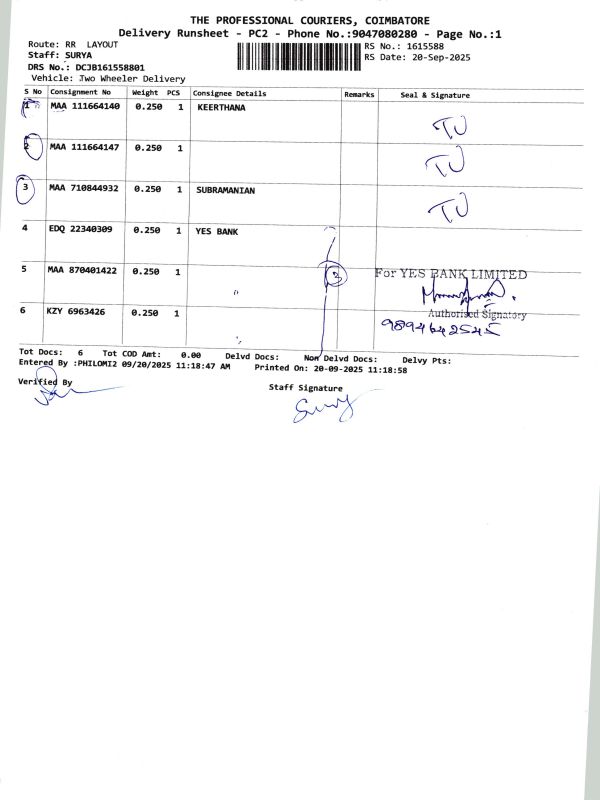 THE PROFESSIONAL COURIERS, COIMBATORE
Delivery Runsheet - PC2 - Phone No.:9047080280 - Page No.:1
Route: RR LAYOUT
RS No.: 1615588
Staff: SURYA
RS Date: 20-Sep-2025
DRS No.: DCJB161558801
Vehicle: Two Wheeler Delivery
S No Consignment No Weight PCS Consignee Details Remarks Seal & Signature
1 MAA 111664140 0.250 1 KEERTHANA
TU
2 MAA 111664147 0.250 1
TU
3 MAA 710844932 0.250 1 SUBRAMANIAN
TU
4 EDQ 22340309 0.250 1 YES BANK
5 MAA 870401422 0.250 1 3 For YES BANK LIMITED
Authorised Signatory
6 KZY 6963426 0.250 1
9894642545
Tot Docs: 6 Tot COD Amt: 0.00 Delvd Docs: Non Delvd Docs: Delvy Pts:
Entered By :PHILOMI2 09/20/2025 11:18:47 AM Printed On: 20-09-2025 11:18:58
Verified By
Staff Signature
Surya